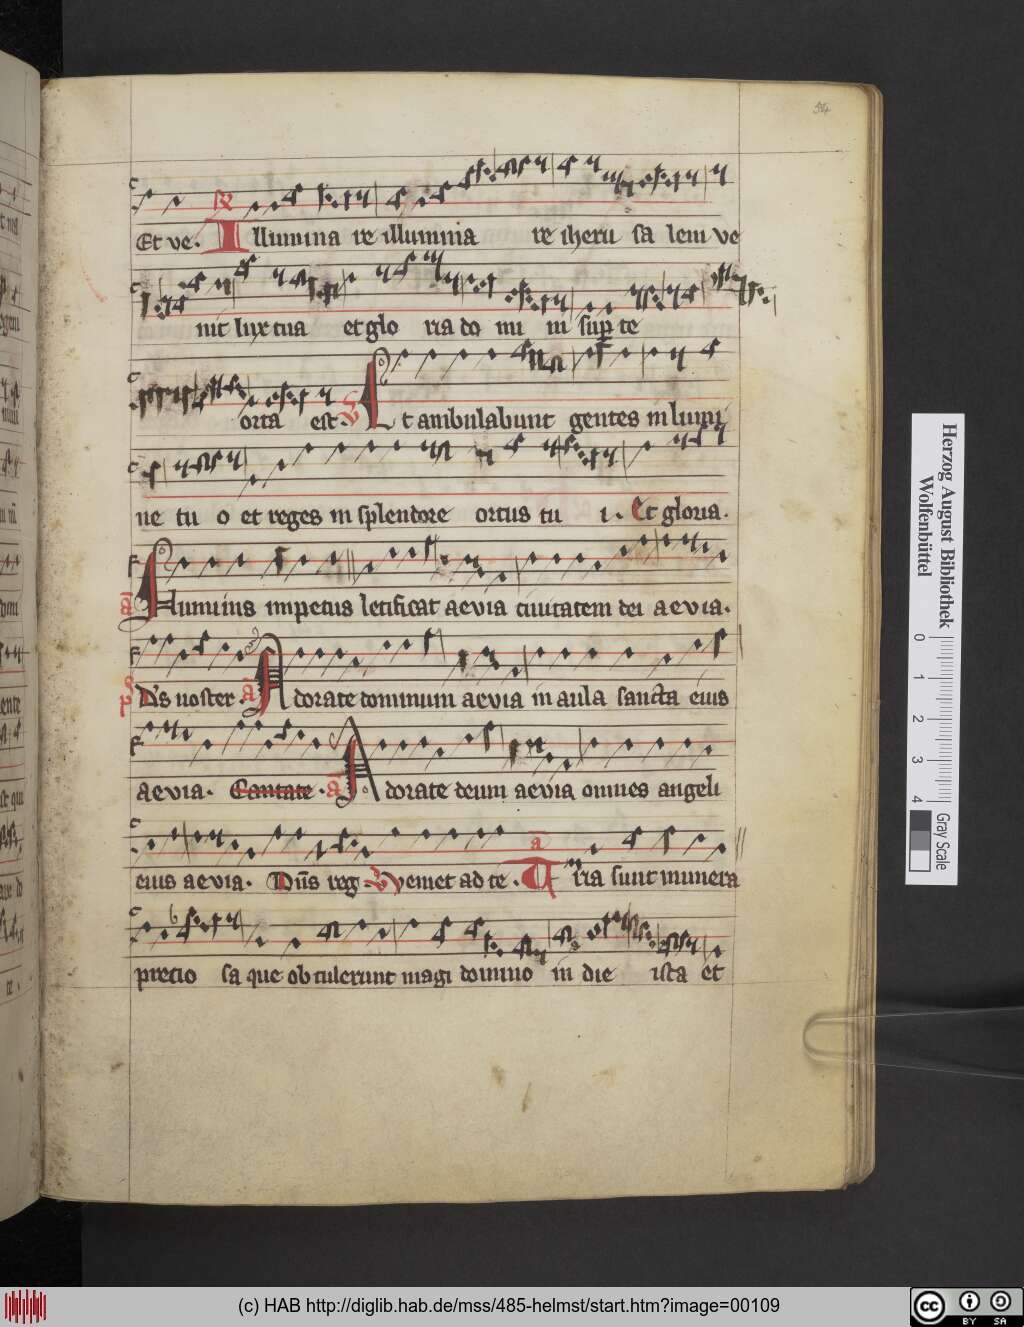 54
Et ve. Illumina re illumina re iheru sa lem ve
nit lux tua et glo ria do mi ni sup te
orta est. Et ambulabunt gentes in lumi
ne tu o et reges in splendore ortus tu i. Et gloria.
Fluminis impetus letificat aevia ciuitatem dei aevia.
Ds noster. Adorate dominum aevia in aula sancta eius
aevia. Cantate. Adorate deum aevia omnes angeli
eius aevia. Dns reg. Veniet ad te. Tria sunt munera
precio sa que obtulerunt magi domino in die ista et
Herzog August Bibliothek
Wolfenbüttel
0 1 2 3 4
Gray Scale
(c) HAB http://diglib.hab.de/mss/485-helmst/start.htm?image=00109
cc BY SA